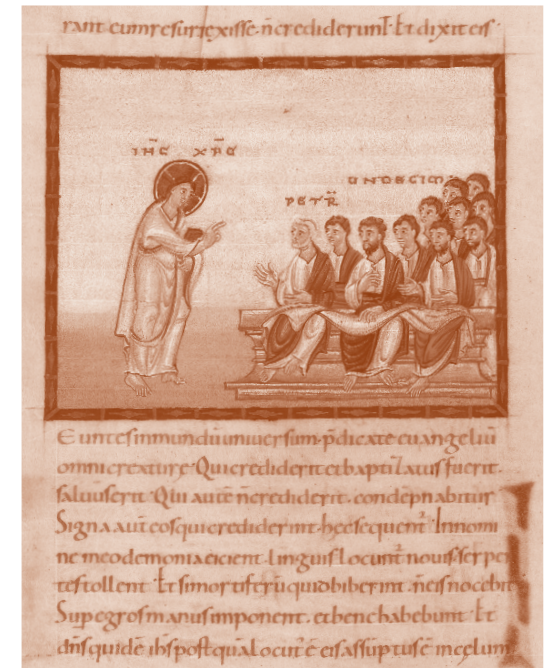 rant eum resurrexisse. n̄ crediderunt̄. Et dixit eis
IH̄C XP̄C
UNDECIM
PETR̄
Euntes in mundū universum. p̄dicate euangeliū
omni creaturę. Qui crediderit et baptizatus fuerit.
saluus erit. Qui autē n̄ crediderit. condēpnabitur
Signa aut̄ eos qui crediderint. hęc sequent̄. In nomi
ne meo demonia eicient. Linguis locunt̄ nouis. Serpen
tes tollent. Et si mortiferū quid biberint. n̄ eis nocebit
Sup̄ egros manus imponent. et bene habebunt. Et
dn̄s quidē ih̄s postquā locut' ē eis assūptus ē in cęlum